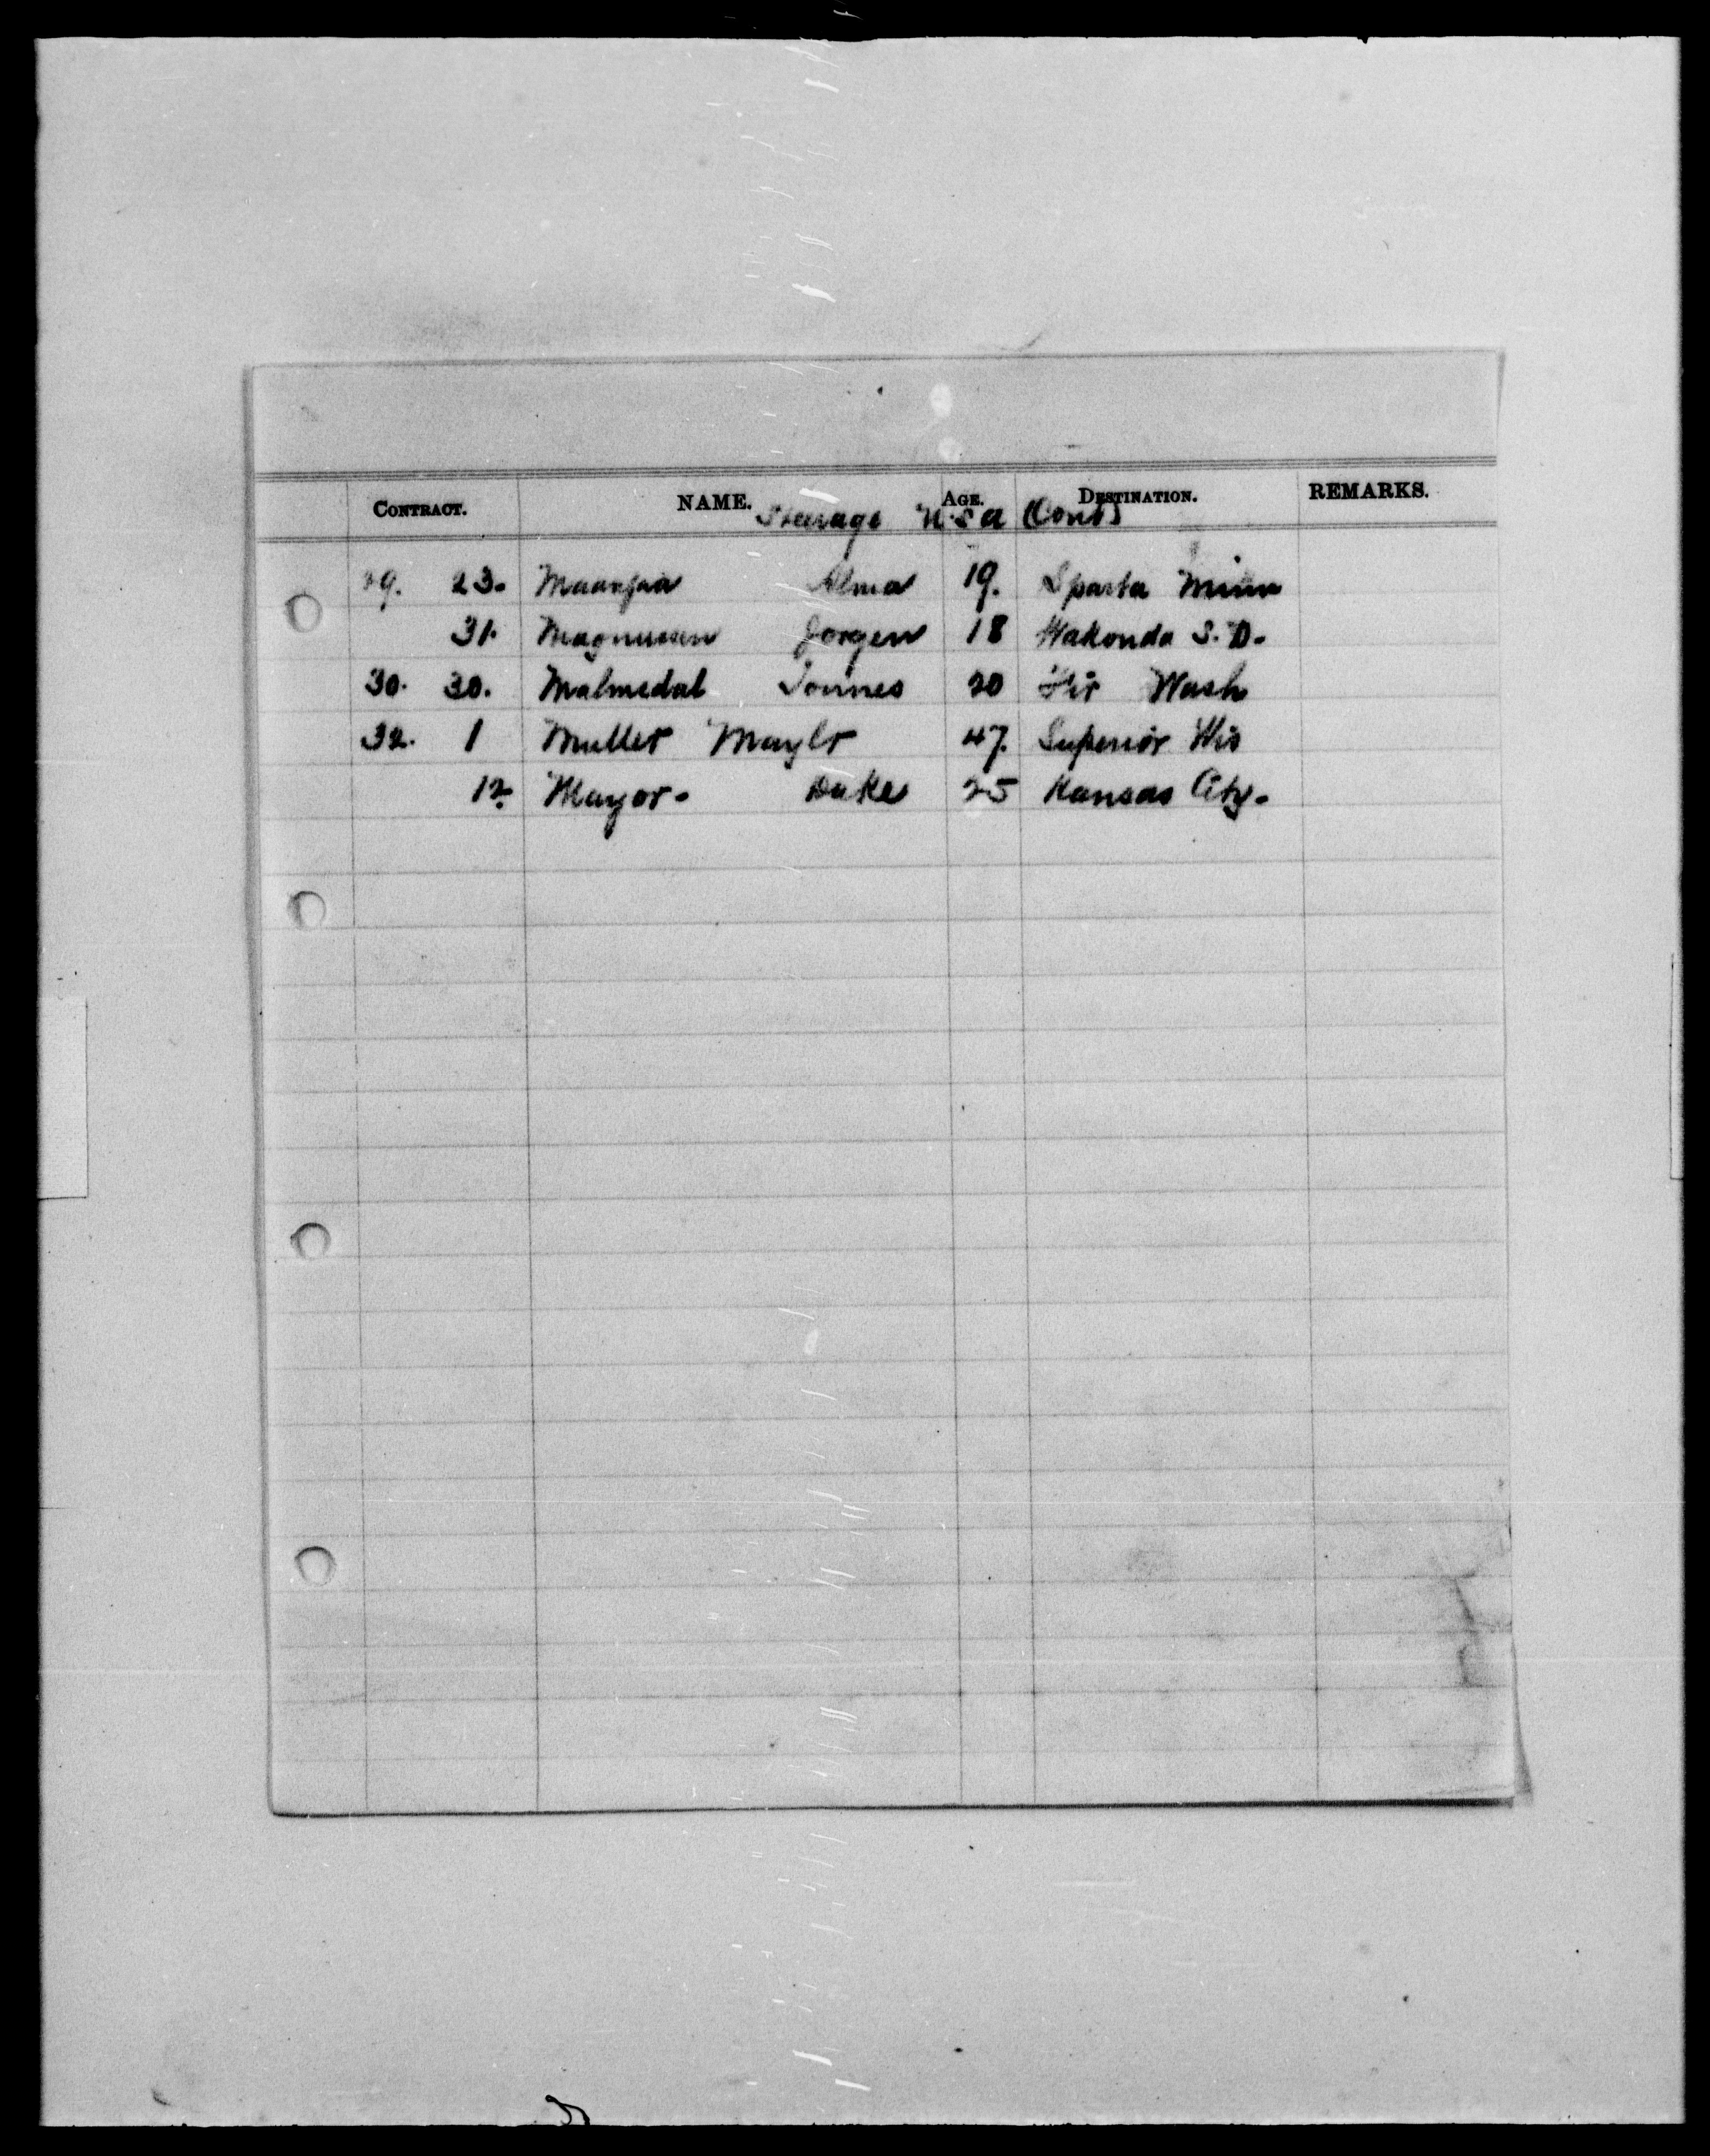 CONTRACT. NAME. AGE. DESTINATION. REMARKS.
Steerage U.S.A (Cont)
29. 23. Alma 19. Sparta Minn
31. Magnussen Jorgen 18 Wakonda S.D.
30. 30. Malmedal Tonnes 20 Fir Wash
32. 1 47. Superior Wis
12. Mayor. Duke 25 Kansas City.